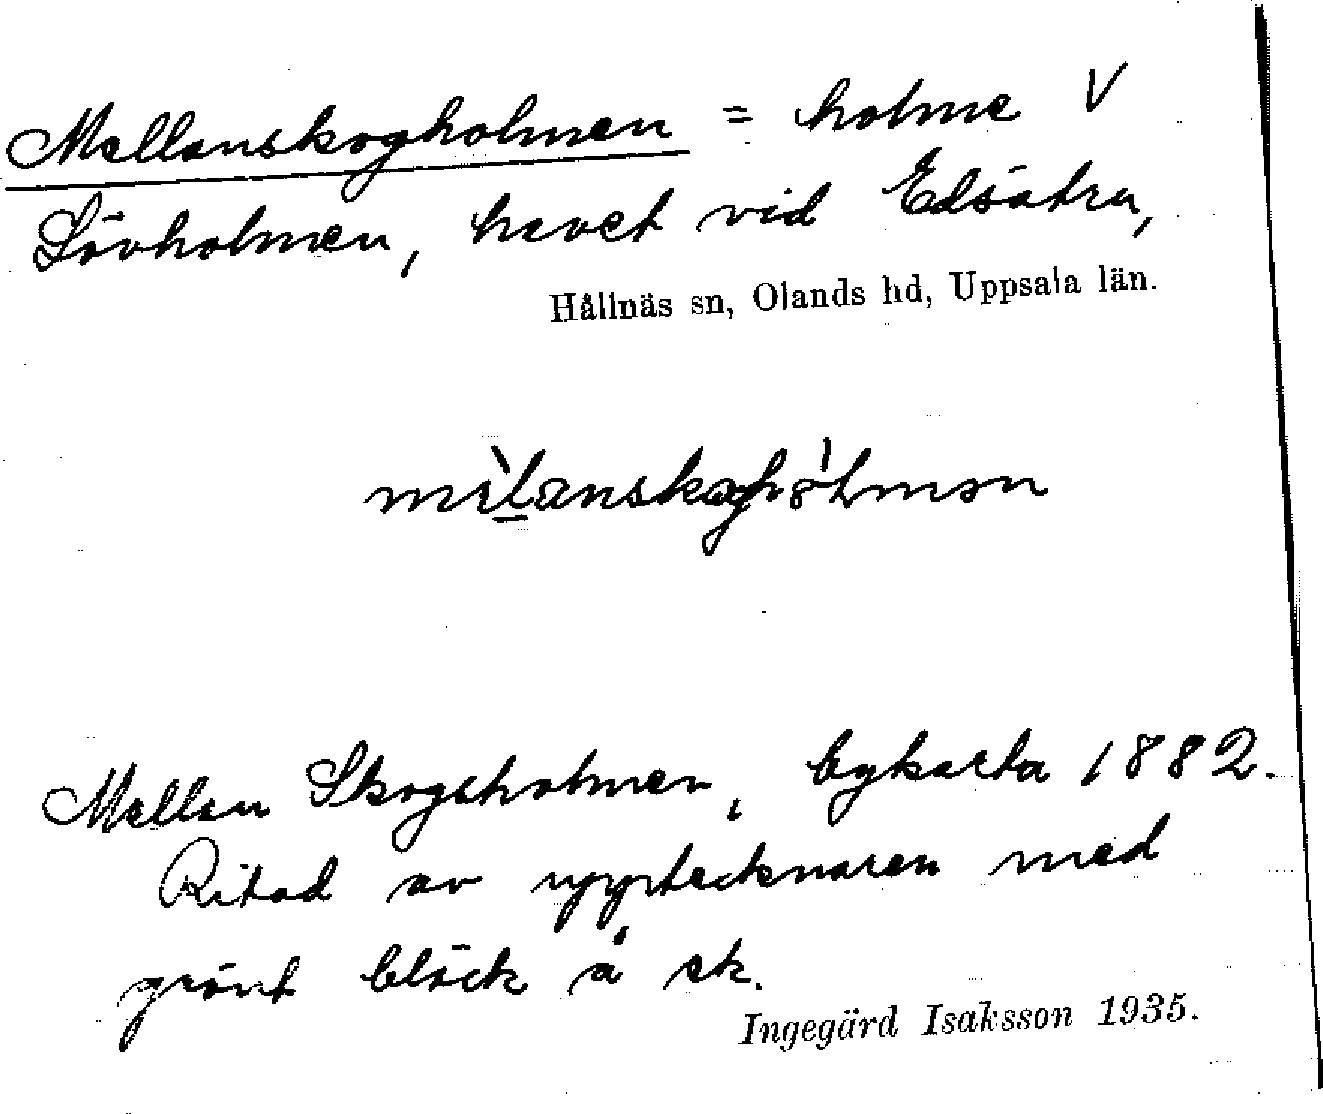 Mellanskogholmen = holme V
Lövholmen, havet vid Edsätra,
Hållnäs sn, Olands hd, Uppsala län.
Mellan Skogsholmen, bykarta 1882.
Ritad av upptecknaren med
grönt bläck å ek.
Ingegärd Isaksson 1935.